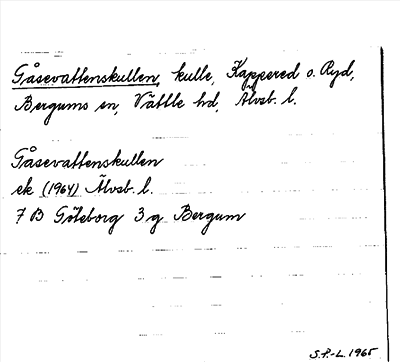 Gåsevattenskullen, kulle, Kappered o. Ryd,
Bergums sn, Vättle hd, Älvsb. l.
Gåsevattenskullen
ek (1964) Älvsb. l.
7 B Göteborg 3 g Bergum
S.F.-L. 1965